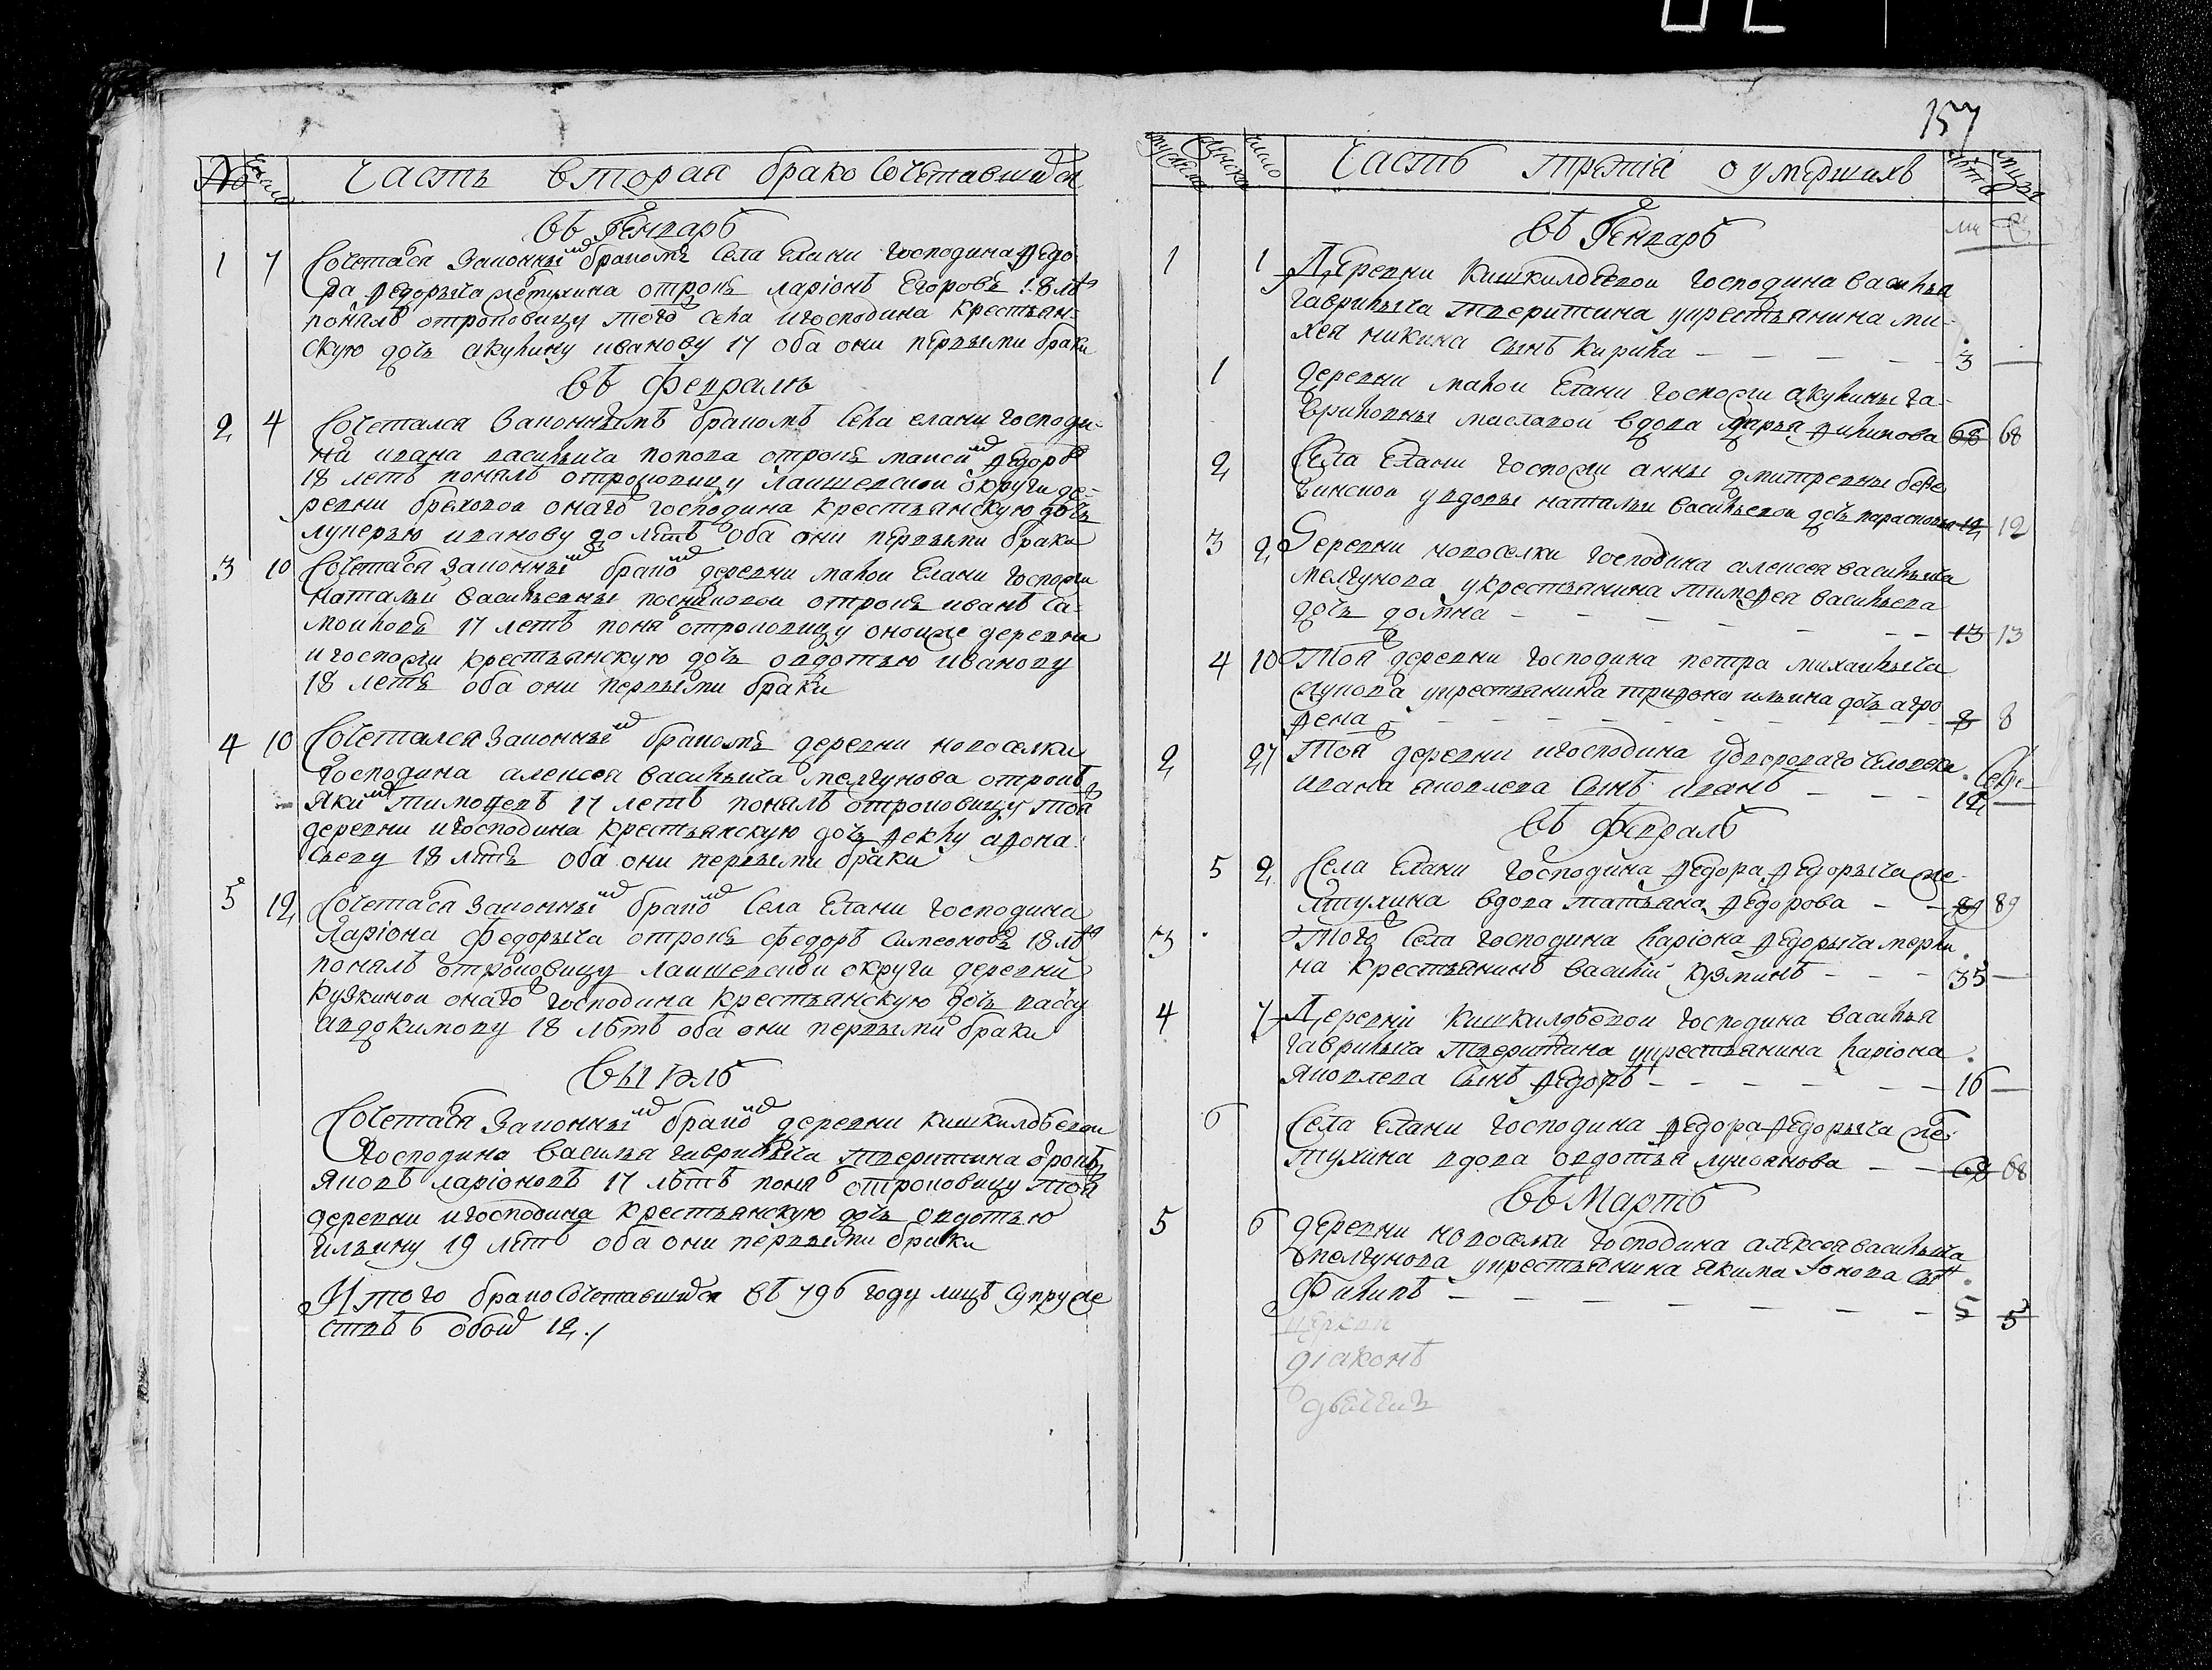 № число Часть вторая бракосочетавшихся
въ Генваре
1 7 Сочетался законным бракомъ села Елани господина Ѳедо-
ра Ѳедорыча Желтухина отрокъ ларіонъ Егоровъ 18 лѣтъ
понялъ отроковицу того села и господина крестьян-
скую дочь акулину иванову 17 оба они первыми браки
въ феврале
2 4 Сочетался законнымъ бракомъ села елани господи-
на ивана васильича попова отрокъ маисим Ѳедоровъ
18 летъ понялъ отроковицу лаишевскои округи де-
ревни бреховои онаго господина крестьянскую дочь
луперью иванову 20 лѣтъ оба они первыми браки
3 10 Сочетался законным браком деревни малои Елани госпожи
натальи васильевны посниковои отрокъ иванъ са-
моиловъ 17 летъ понял отроковицу оноиже деревни
и госпожи крестьянскую дочь овдотью иванову
18 летъ оба они первыми браки
4 10 Сочетался законным бракомъ деревни новоселки
господина алексея васильича мелгунова отрокъ
яким тимоѲеевъ 17 летъ понялъ отроковицу тоя
деревни и господина крестьянскую дочь Ѳеклу аѲона-
сьеву 18 лѣтъ оба они первыми браки
5 12 Сочетался законным браком села Елани господина
Ларіона Федорыча отрокъ федоръ симеоновъ 18 лѣтъ
понялъ отроковицу лаишевскои округи деревни
кузкинои онаго господина крестьянскую дочь вассу
авдокимову 18 лѣтъ оба они первыми браки
въ Іюле
Сочетался законным браком деревни кишкилдѣевои
господина василья гаврилыча тверитина отрокъ
яковъ ларіоновъ 17 лѣтъ понял отроковицу тоя
деревни и господина крестьянскую дочь овдотью
ильину 19 лѣтъ оба они первыми браки
Итого бракосочетавшихся въ 796 году лицъ супруже
ствъ 6 обоих 12 ./
157
мужска женска число Часть третія о умершихъ лѣта
въ Генварѣ
1 1 Деревни кишкилдѣевои господина василья
гаврилыча тверитина у крестьянина ми-
хея никина сынъ кирила — — — — 3 —
1 деревни малои Елани госпожи акулины га-
вриловны масловои вдова дарья Ѳилипова 68 68
2 Села Елани госпожи анны дмитревны
у вдовы натальи васильевои дочь парасковья 12 12
3 2 Деревни новоселки господина алексея васильича
мелгунова у крестьянина тимоѲея васильева
дочь домна — — — — — — — 13 13
4 10 Тоя деревни господина петра михаилыча
у крестьянина триѲона ильина дочь агро
Ѳена — — — — — — — — 8 8
2 27 Тоя деревни и господина у двороваго человека
ивана яковлева сынъ иванъ — — — 12 —
въ Февралѣ
5 2 Села Елани господина Ѳедора Ѳедорыча же-
лтухина вдова татьяна Ѳедорова — — 89 89
3 Того села господина ларіона Ѳедорыча
крестьянинъ василій кузминъ — — — 35 —
4 7 Деревни кишкилдѣевои господина василья
гаврилыча тверитина у крестьянина ларіона
яковлева сынъ Ѳедоръ — — — — — — 16 —
6 Села Елани господина Ѳедора Ѳедорыча жел
тухина вдова овдотья лукоянова — — 68 68
въ Мартѣ
5 6 деревни новоселки господина алексея васильича
мелгунова у крестьянина якима сын
Филипъ — — — — — — — — 5 5
діаконъ